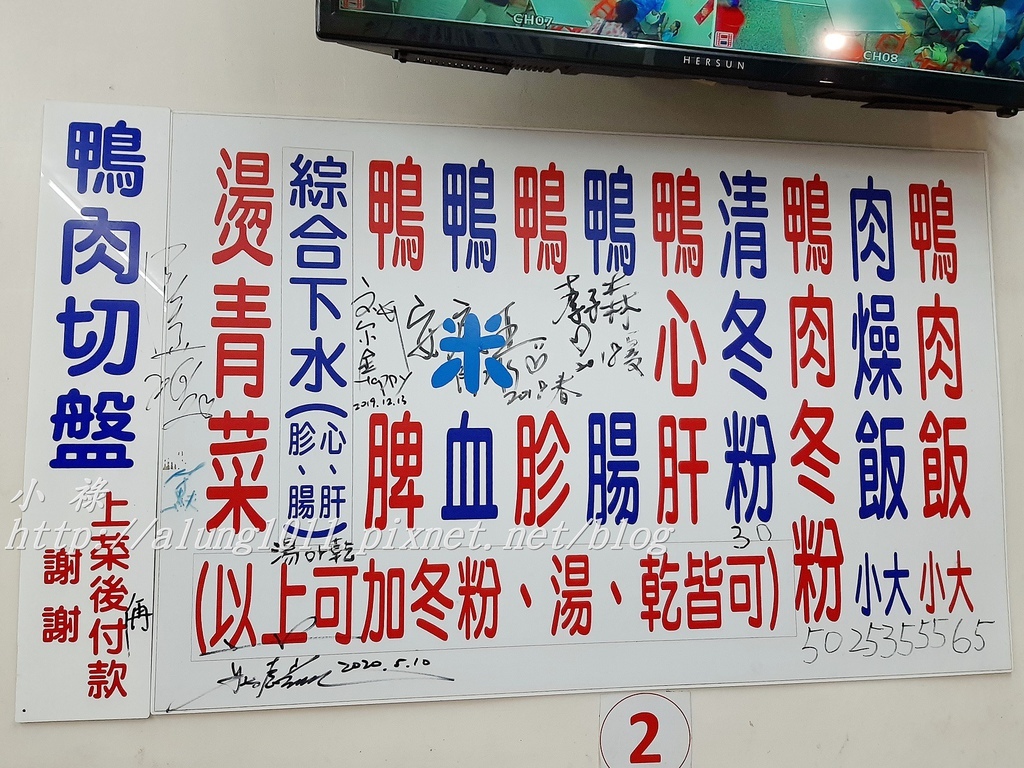 CH07
CH08
HERSUN
鴨肉飯
大
小
65
55
肉燥飯
大
小
35
25
鴨肉冬粉
50
清冬粉
30
鴨心肝
鴨腸
鴨胗
鴨米血
鴨脾
綜合下水(心、肝、胗、腸)
湯的乾
燙青菜
(以上可加冬粉、湯、乾皆可)
鴨肉切盤
上菜後再付款
謝謝
2019.12.13
Happy
2020.5.10
小 祿
http://alung1011.pixnet.net/blog
2